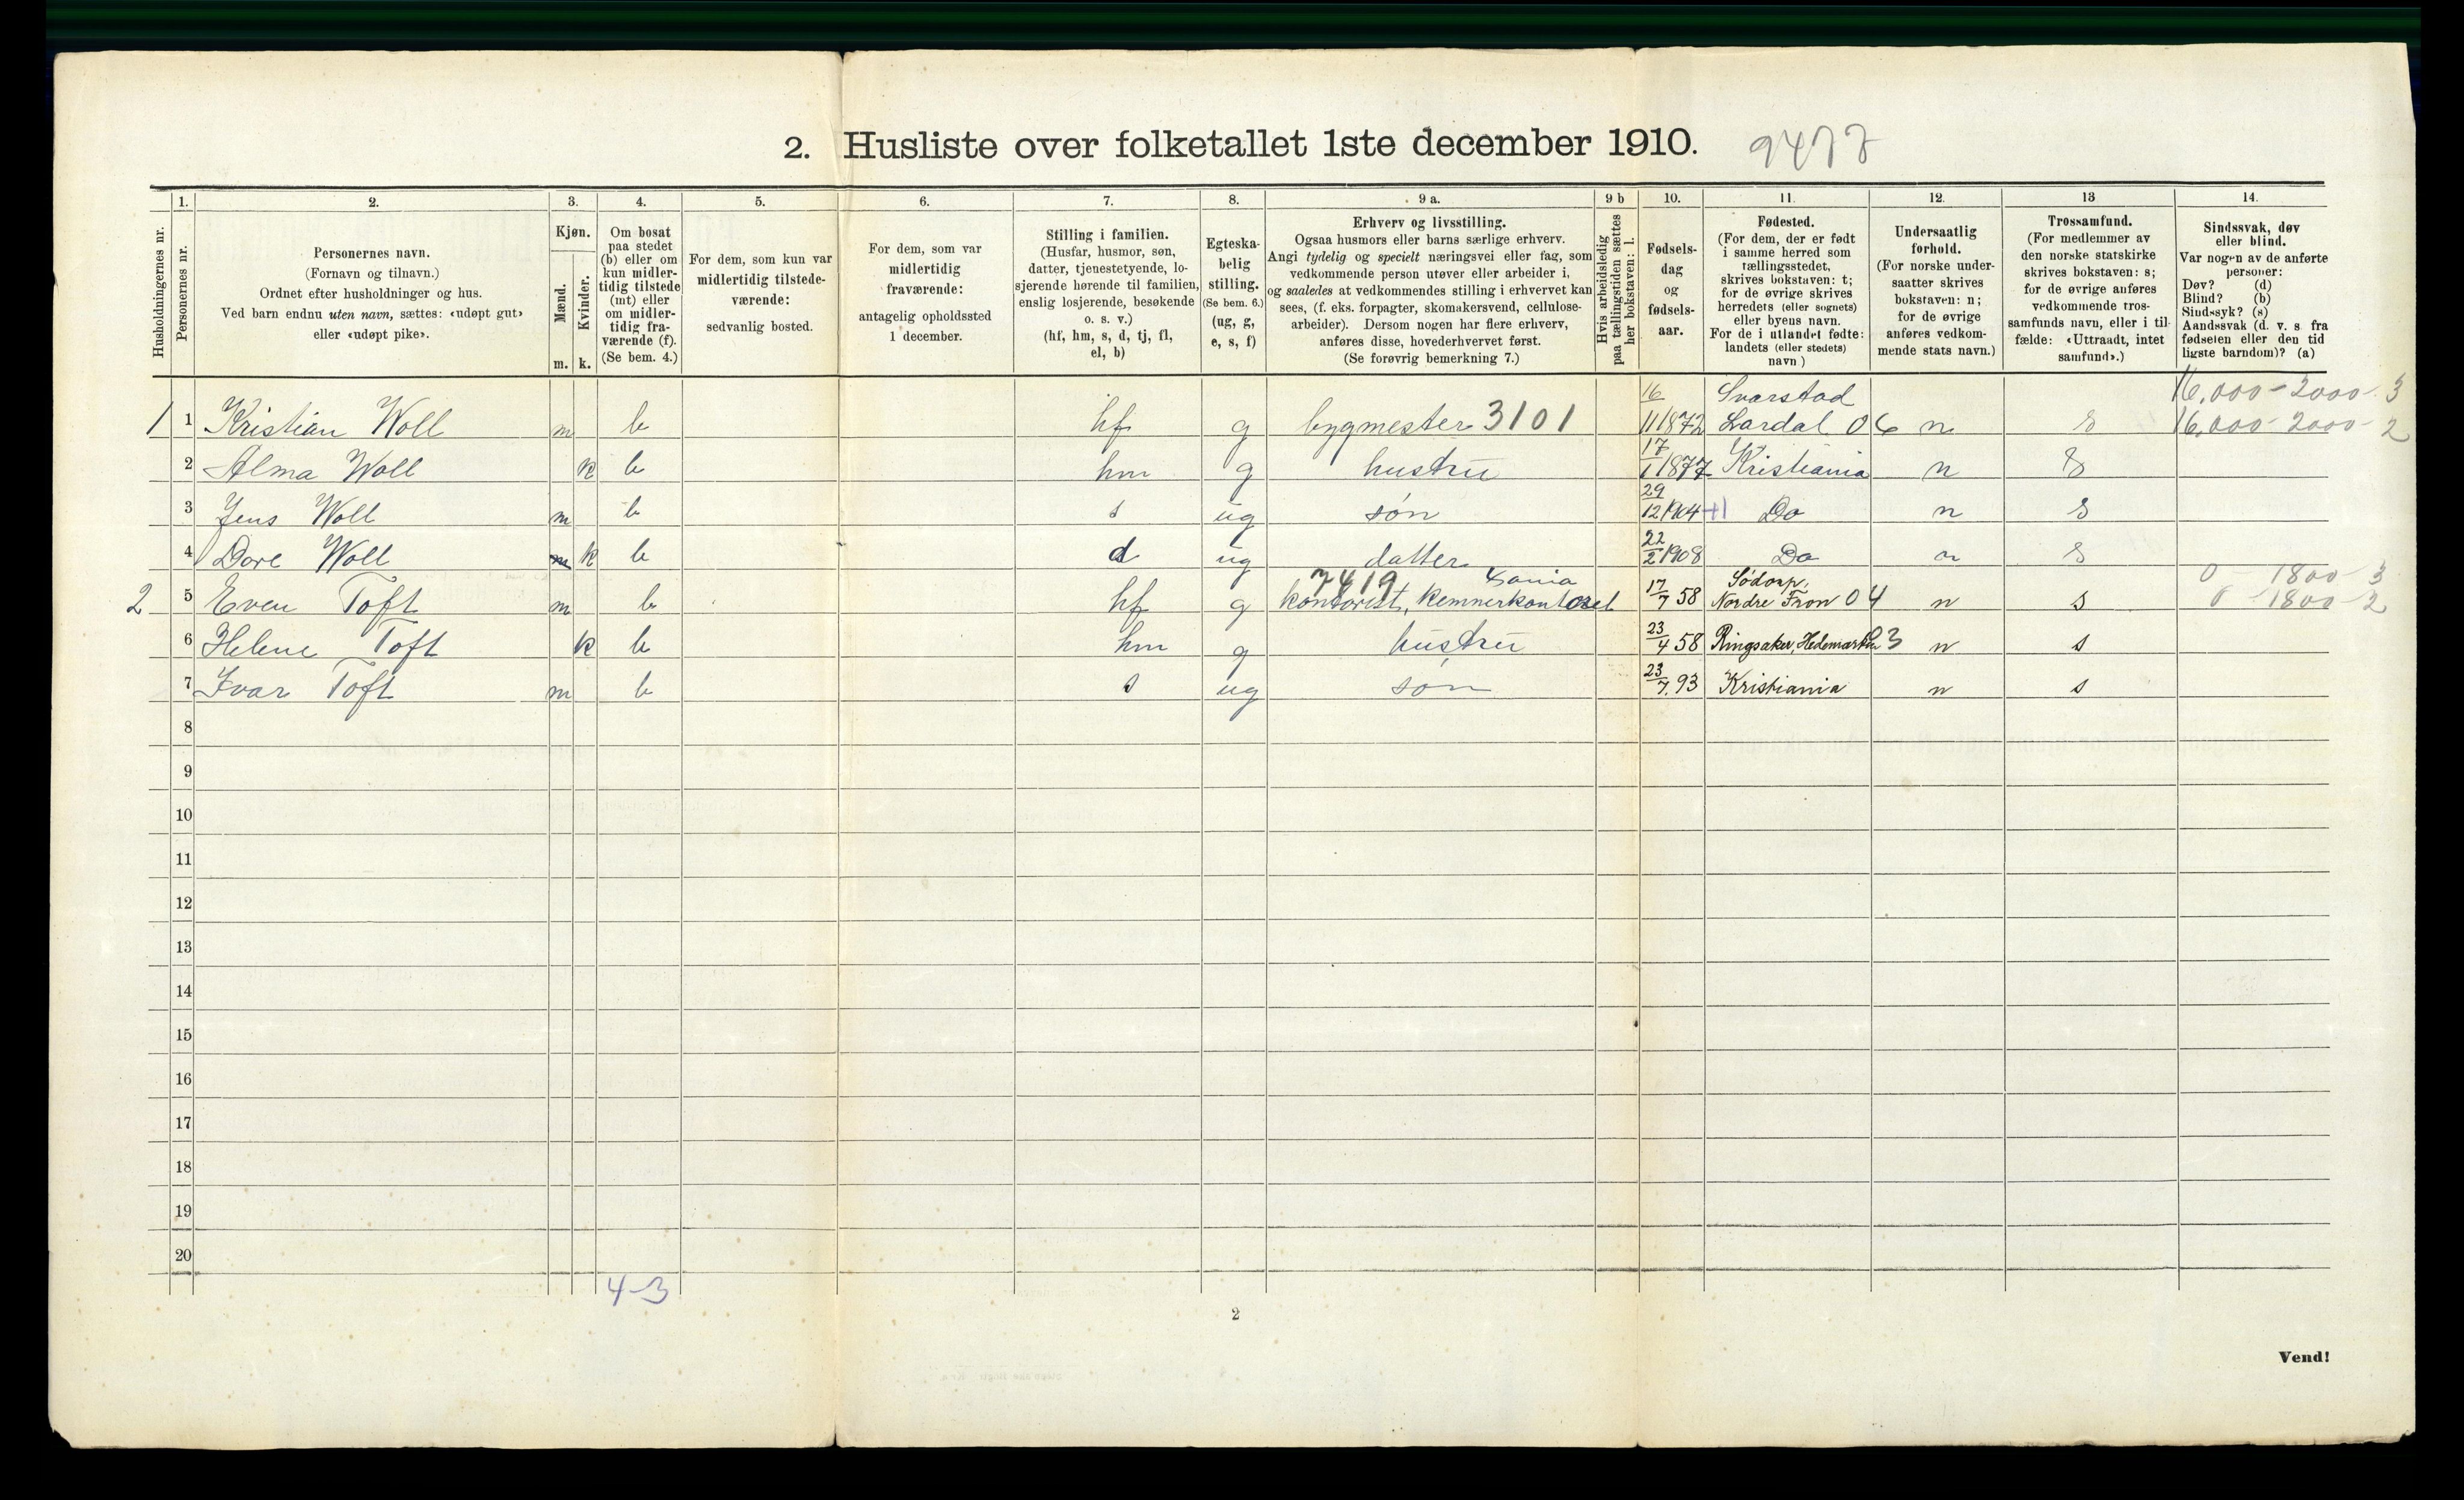 2. Husliste over folketallet 1ste december 1910. 9477
1. 2. 3. 4. 5. 6. 7. 8. 9 a. 9 b 10. 11. 12. 13 14.
Husholdningernes nr.
Personernes nr.
Personernes navn.
(Fornavn og tilnavn.)
Ordnet efter husholdninger og hus.
Ved barn endnu uten navn, sættes: «udøpt gut»
eller «udøpt pike».
Kjøn.
Mænd.
Kvinder.
m. k.
Om bosat
paa stedet
(b) eller om
kun midler-
tidig tilstede
(mt) eller
om midler-
tidig fra-
værende (f).
(Se bem. 4.)
For dem, som kun var
midlertidig tilstede-
værende:
sedvanlig bosted.
For dem, som var
midlertidig
fraværende:
antagelig opholdssted
1 december.
Stilling i familien.
(Husfar, husmor, søn,
datter, tjenestetyende, lo-
sjerende hørende til familien,
enslig losjerende, besøkende
o. s. v.)
(hf, hm, s, d, tj, fl,
el, b)
Egteska-
belig
stilling.
(Se bem. 6.)
(ug, g,
e, s, f)
Erhverv og livsstilling.
Ogsaa husmors eller barns særlige erhverv.
Angi tydelig og specielt næringsvei eller fag, som
vedkommende person utøver eller arbeider i,
og saaledes at vedkommendes stilling i erhvervet kan
sees, (f. eks. forpagter, skomakersvend, cellulose-
arbeider). Dersom nogen har flere erhverv,
anføres disse, hovederhvervet først.
(Se forøvrig bemerkning 7.)
Hvis arbeidsledig
paa tællingstiden sættes
her bokstaven: l.
Fødsels-
dag
og
fødsels-
aar.
Fødested.
(For dem, der er født
i samme herred som
tællingsstedet,
skrives bokstaven: t;
for de øvrige skrives
herredets (eller sognets)
eller byens navn.
For de i utlandet fødte:
landets (eller stedets)
navn)
Undersaatlig
forhold.
(For norske under-
saatter skrives
bokstaven: n;
for de øvrige
anføres vedkom-
mende stats navn.)
Trossamfund.
(For medlemmer av
den norske statskirke
skrives bokstaven: s;
for de øvrige anføres
vedkommende tros-
samfunds navn, eller i til-
fælde: «Uttraadt, intet
samfund».)
Sindssvak, døv
eller blind.
Var nogen av de anførte
personer:
Døv? (d)
Blind? (b)
Sindssyk? (s)
Aandssvak (d. v. s fra
fødselen eller den tid
ligste barndom)? (a)
16 Svarstad 16,000 - 2000 - 3
1 1 Kristian Woll m b hf g bygmester 3101 11 1872 Lardal 06 n s 16,000 - 2000 - 2
2 Alma Woll k b hm g hustru 17/1 1877 Kristiania n s
3 Jens Woll m b s ug søn 29/12 1904 +1 Do n s
4 Dore Woll m k b d ug datter 22/2 1908 Do n s
7419 Sødorp, 0 - 1800 - 3
2 5 Even Toft m b hf g kontorist, Kemnerkontoret 17/7 58 Nordre Fron 04 n s 0 - 1800 - 2
6 Helene Toft k b hm g hustru 23/4 58 Ringsaker, Hedemarken 03 n s
7 Ivar Toft m b s ug søn 23/7 93 Kristiania n s
8
9
10
11
12
13
14
15
16
17
18
19
20
4-3
2
Vend!